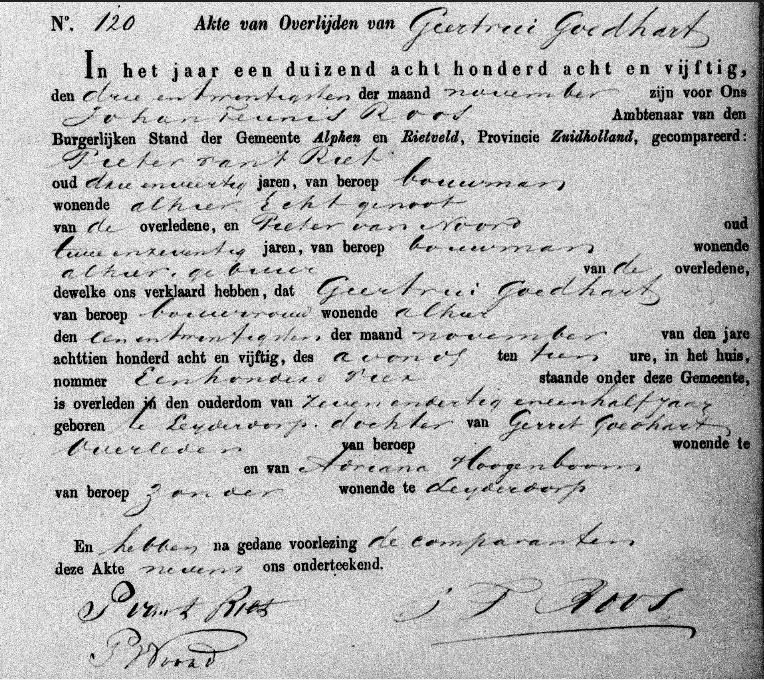 N°. 120 Akte van Overlijden van Geertrui Goedhart
In het jaar een duizend acht honderd acht en vijftig,
den drie en twentigsten der maand november zijn voor Ons
Johan Teunis Roos Ambtenaar van den
Burgerlijken Stand der Gemeente Alphen en Rietveld, Provincie Zuidholland, gecompareerd:
Pieter vant Riet
oud drie enveertig jaren, van beroep bouwman
wonende alhier Echt genoot
van de overledene, en Pieter van Noord oud
twee enzeventig jaren, van beroep bouwman wonende
alhier, gebuur van de overledene,
dewelke ons verklaard hebben, dat Geertrui Goedhart
van beroep bouwvrouw wonende alhier
den een entwentigsten der maand november van den jare
achttien honderd acht en vijftig, des avonds ten tien ure, in het huis,
nommer Eenhonderd staande onder deze Gemeente,
is overleden in den ouderdom van zeven endertig eneenhalf jaar
geboren te Leyderdorp. dochter van Gerrit Goedhart
Overleden van beroep wonende te
en van Adriana Hoogenboom
van beroep zonder wonende te Leyderdorp
En hebben na gedane voorlezing de comparanten
deze Akte nevens ons onderteekend.
P vant Riet J T Roos
P V Noord